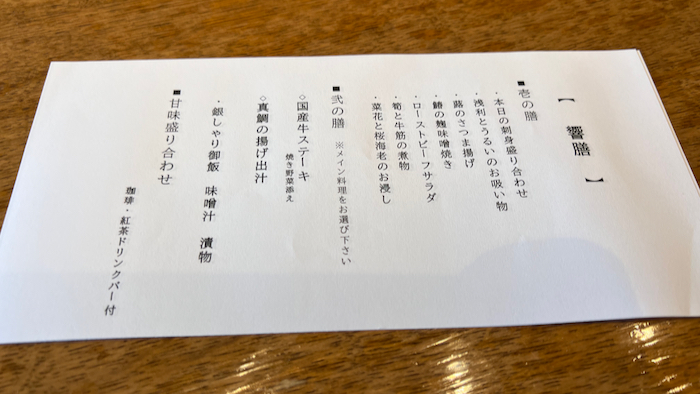 【 響膳 】
■壱の膳
・本日の刺身盛り合わせ
・浅利とうるいのお吸い物
・蕗のさつま揚げ
・鰆の麹味噌焼き
・ローストビーフサラダ
・筍と牛筋の煮物
・菜花と桜海老のお浸し
■弐の膳 ※メイン料理をお選び下さい
◇国産牛ステーキ
焼き野菜添え
◇真鯛の揚げ出汁
・銀しゃり御飯 味噌汁 漬物
■甘味盛り合わせ
珈琲・紅茶ドリンクバー付